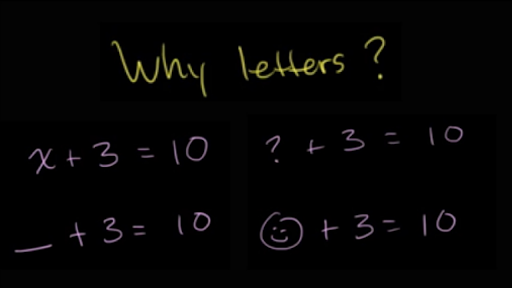 Why letters?
x + 3 = 10
? + 3 = 10
_ + 3 = 10
☺ + 3 = 10